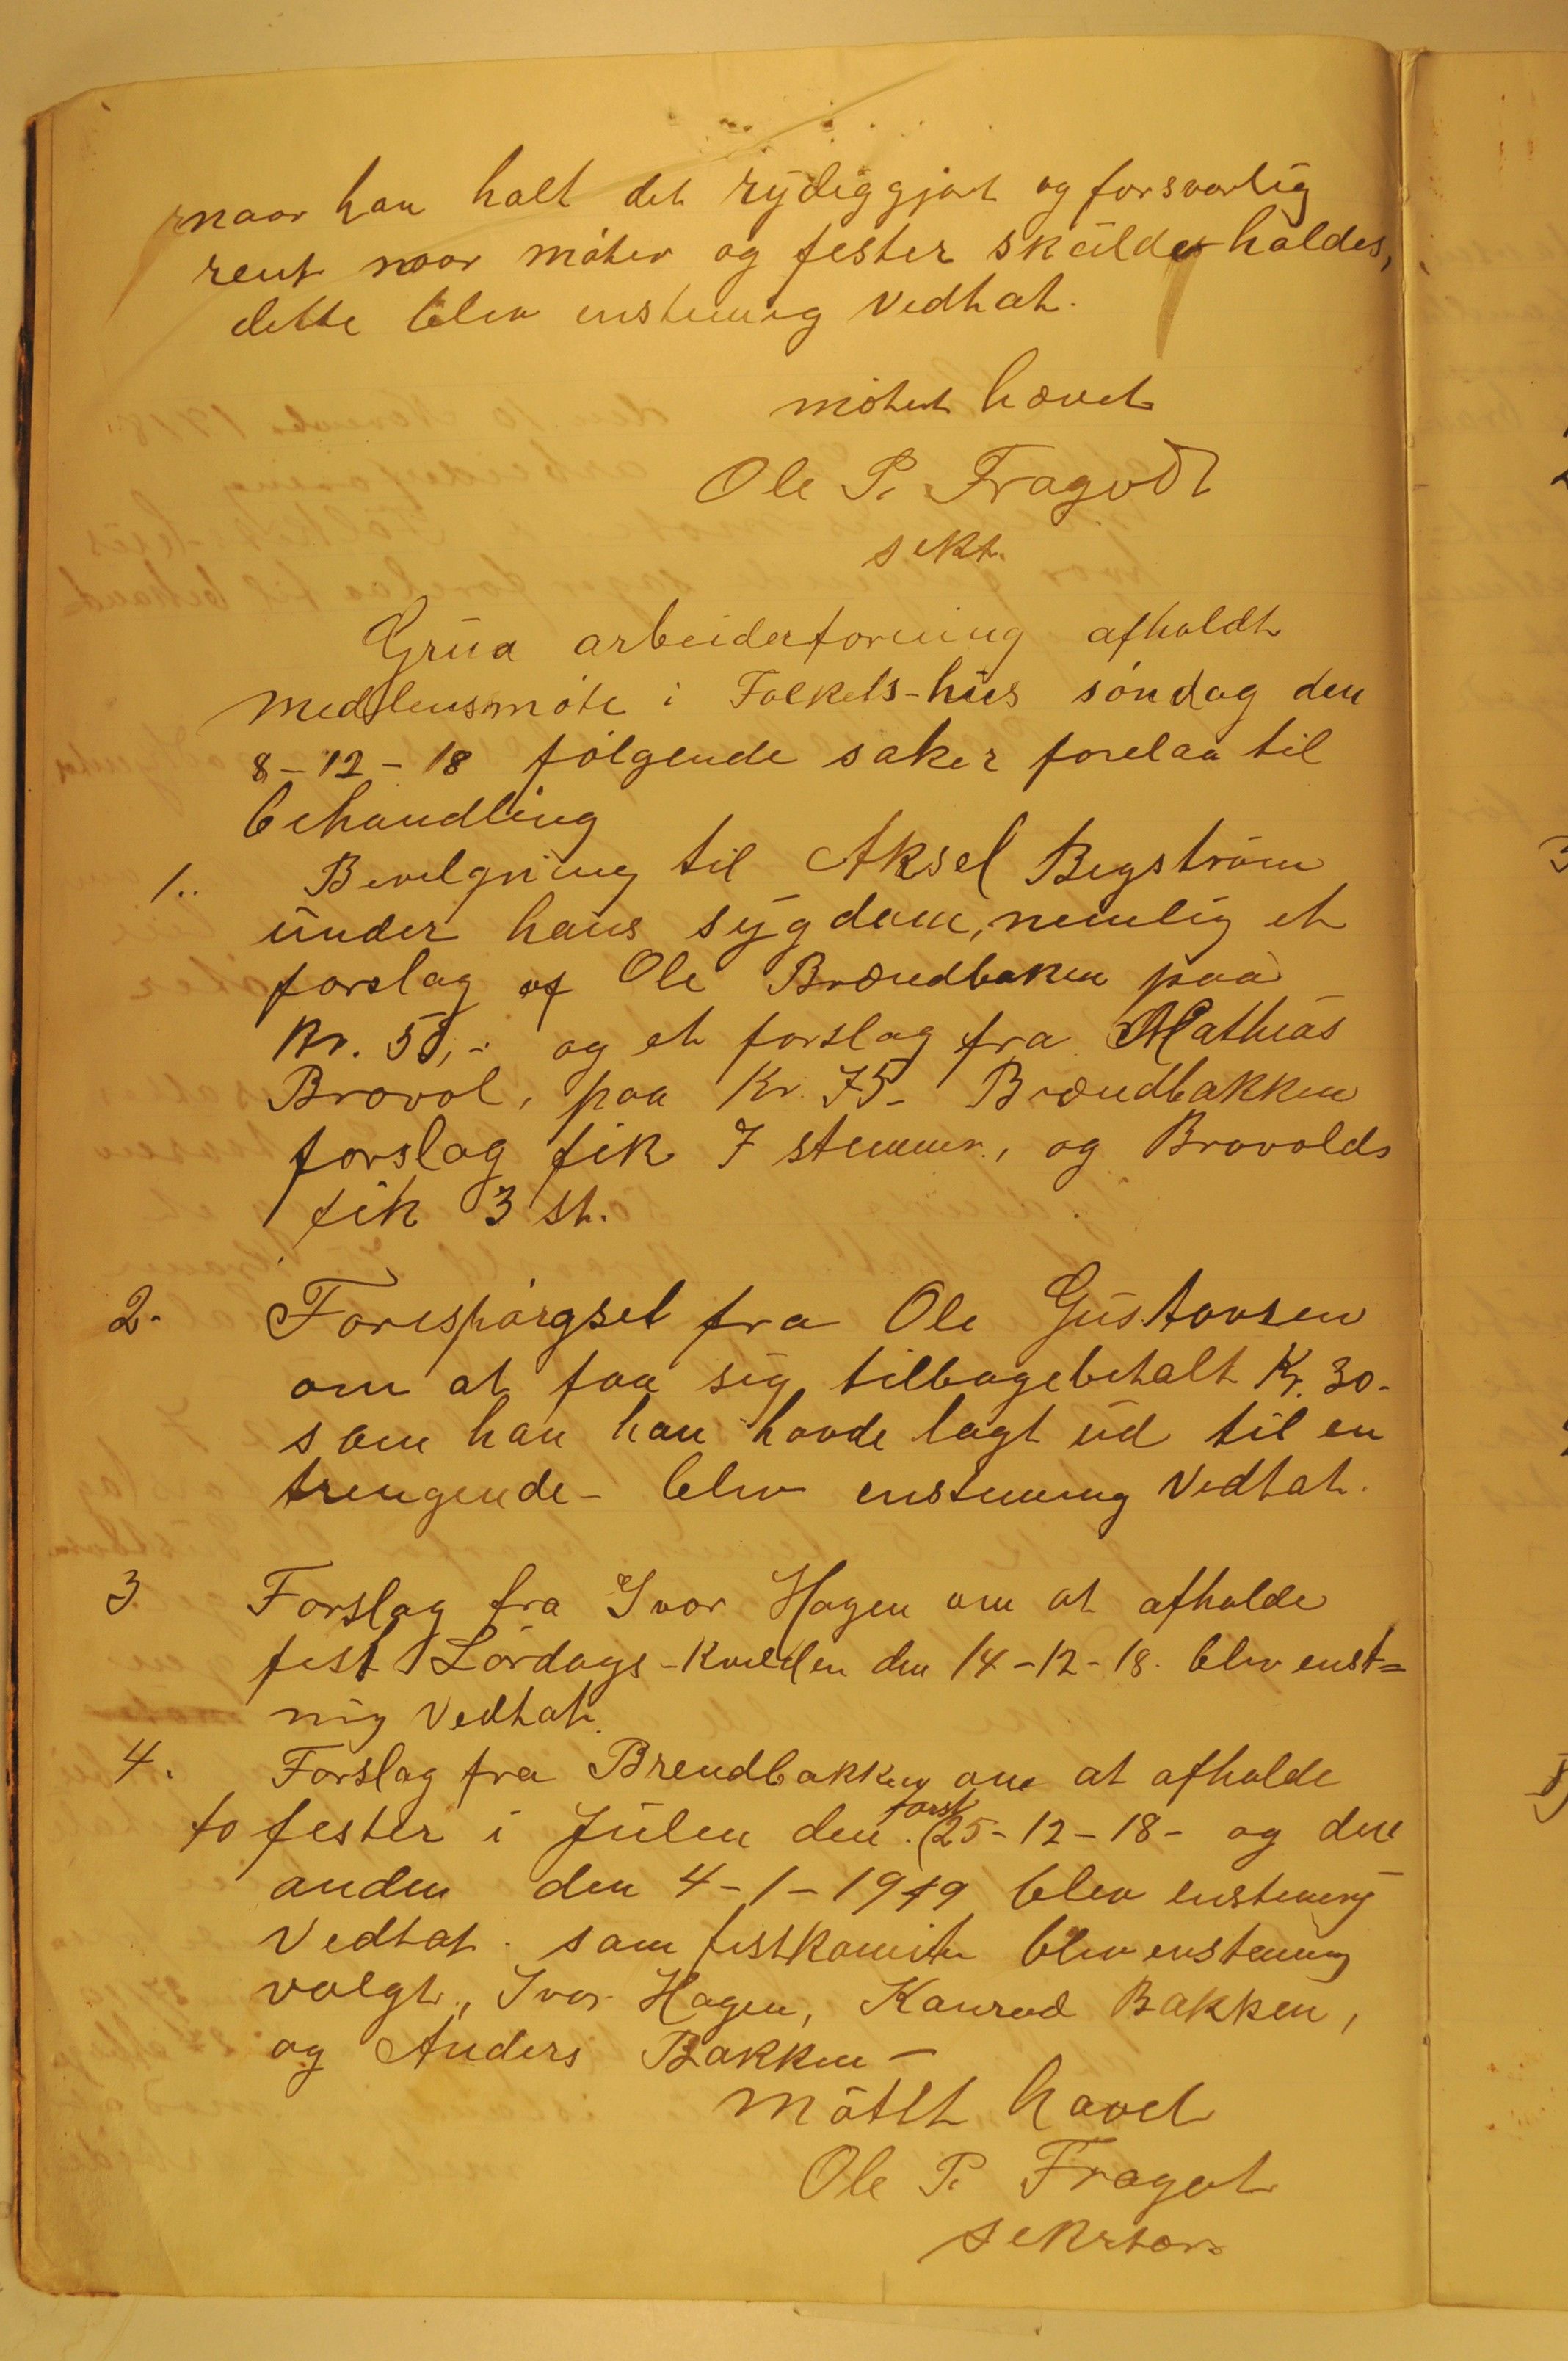 naar han halt det rydiggjort og forsvarlig
rent naar möter og fester skulde holdes,
dette blev enstemig vedtat.
mötet hævet
Ole P. Fragodt
sekt.
Grua arbeiderforening afholdt
medlemsmöte i Folkets-hus söndag den
8-12-18 følgende saker forelaa til
behandling
1.. Bevilgning til Aksel Begström
under hans sygdom, nemlig et
forslag af Ole Brændbaken paa
Kr. 50,- og et forslag fra Mathias
Bravol, paa Kr. 75- Brændbakken
forslag fik 7 stemmer., og Bravolds
fik 3 st.
2. Forespörgsel fra Ole Gustavsen
om at faa sig tilbagebetalt Kr. 30.-
som han han havde lagt ud til en
trengende- blev enstemmig Vedtat.
3 Forslag fra Ivar Hagen om at afholde
fest Lördags-kvelden den 14-12-18. blev enst=
mig Vedtat.
4. Forslag fra Brendbakken om at afholde
to fester i Julen den först (25-12-18- og den
anden den 4-1-1919 blev enstemig
Vedtat. som festkomite blev enstemig
valgt., Ivar Hagen, Konrad Bakken,
og Anders Bakken-
mötet hævet
Ole P. Fragot
sekretær